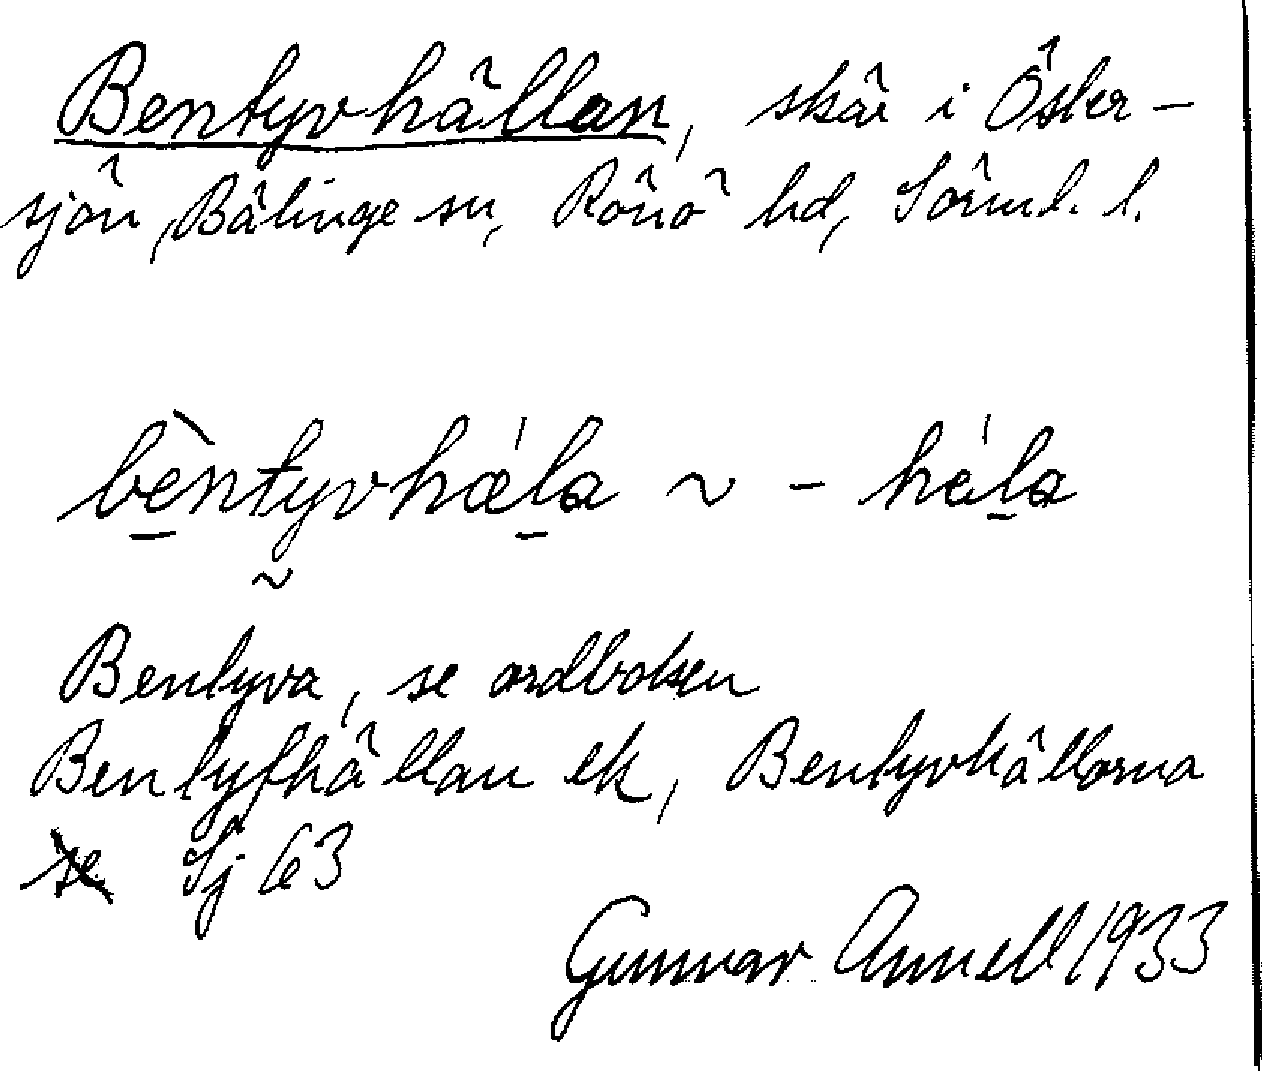 Bentyvhällan, skär i Öster-
sjön, Bälinge sn, Rönö hd, Sörml. l.
bèntyvhæ̍la ~ - he̍la
~
Bentyva, se ordboken
Bentyfhällan ek, Bentyvhällorna
se Sj 63
Gunnar Annell 1933